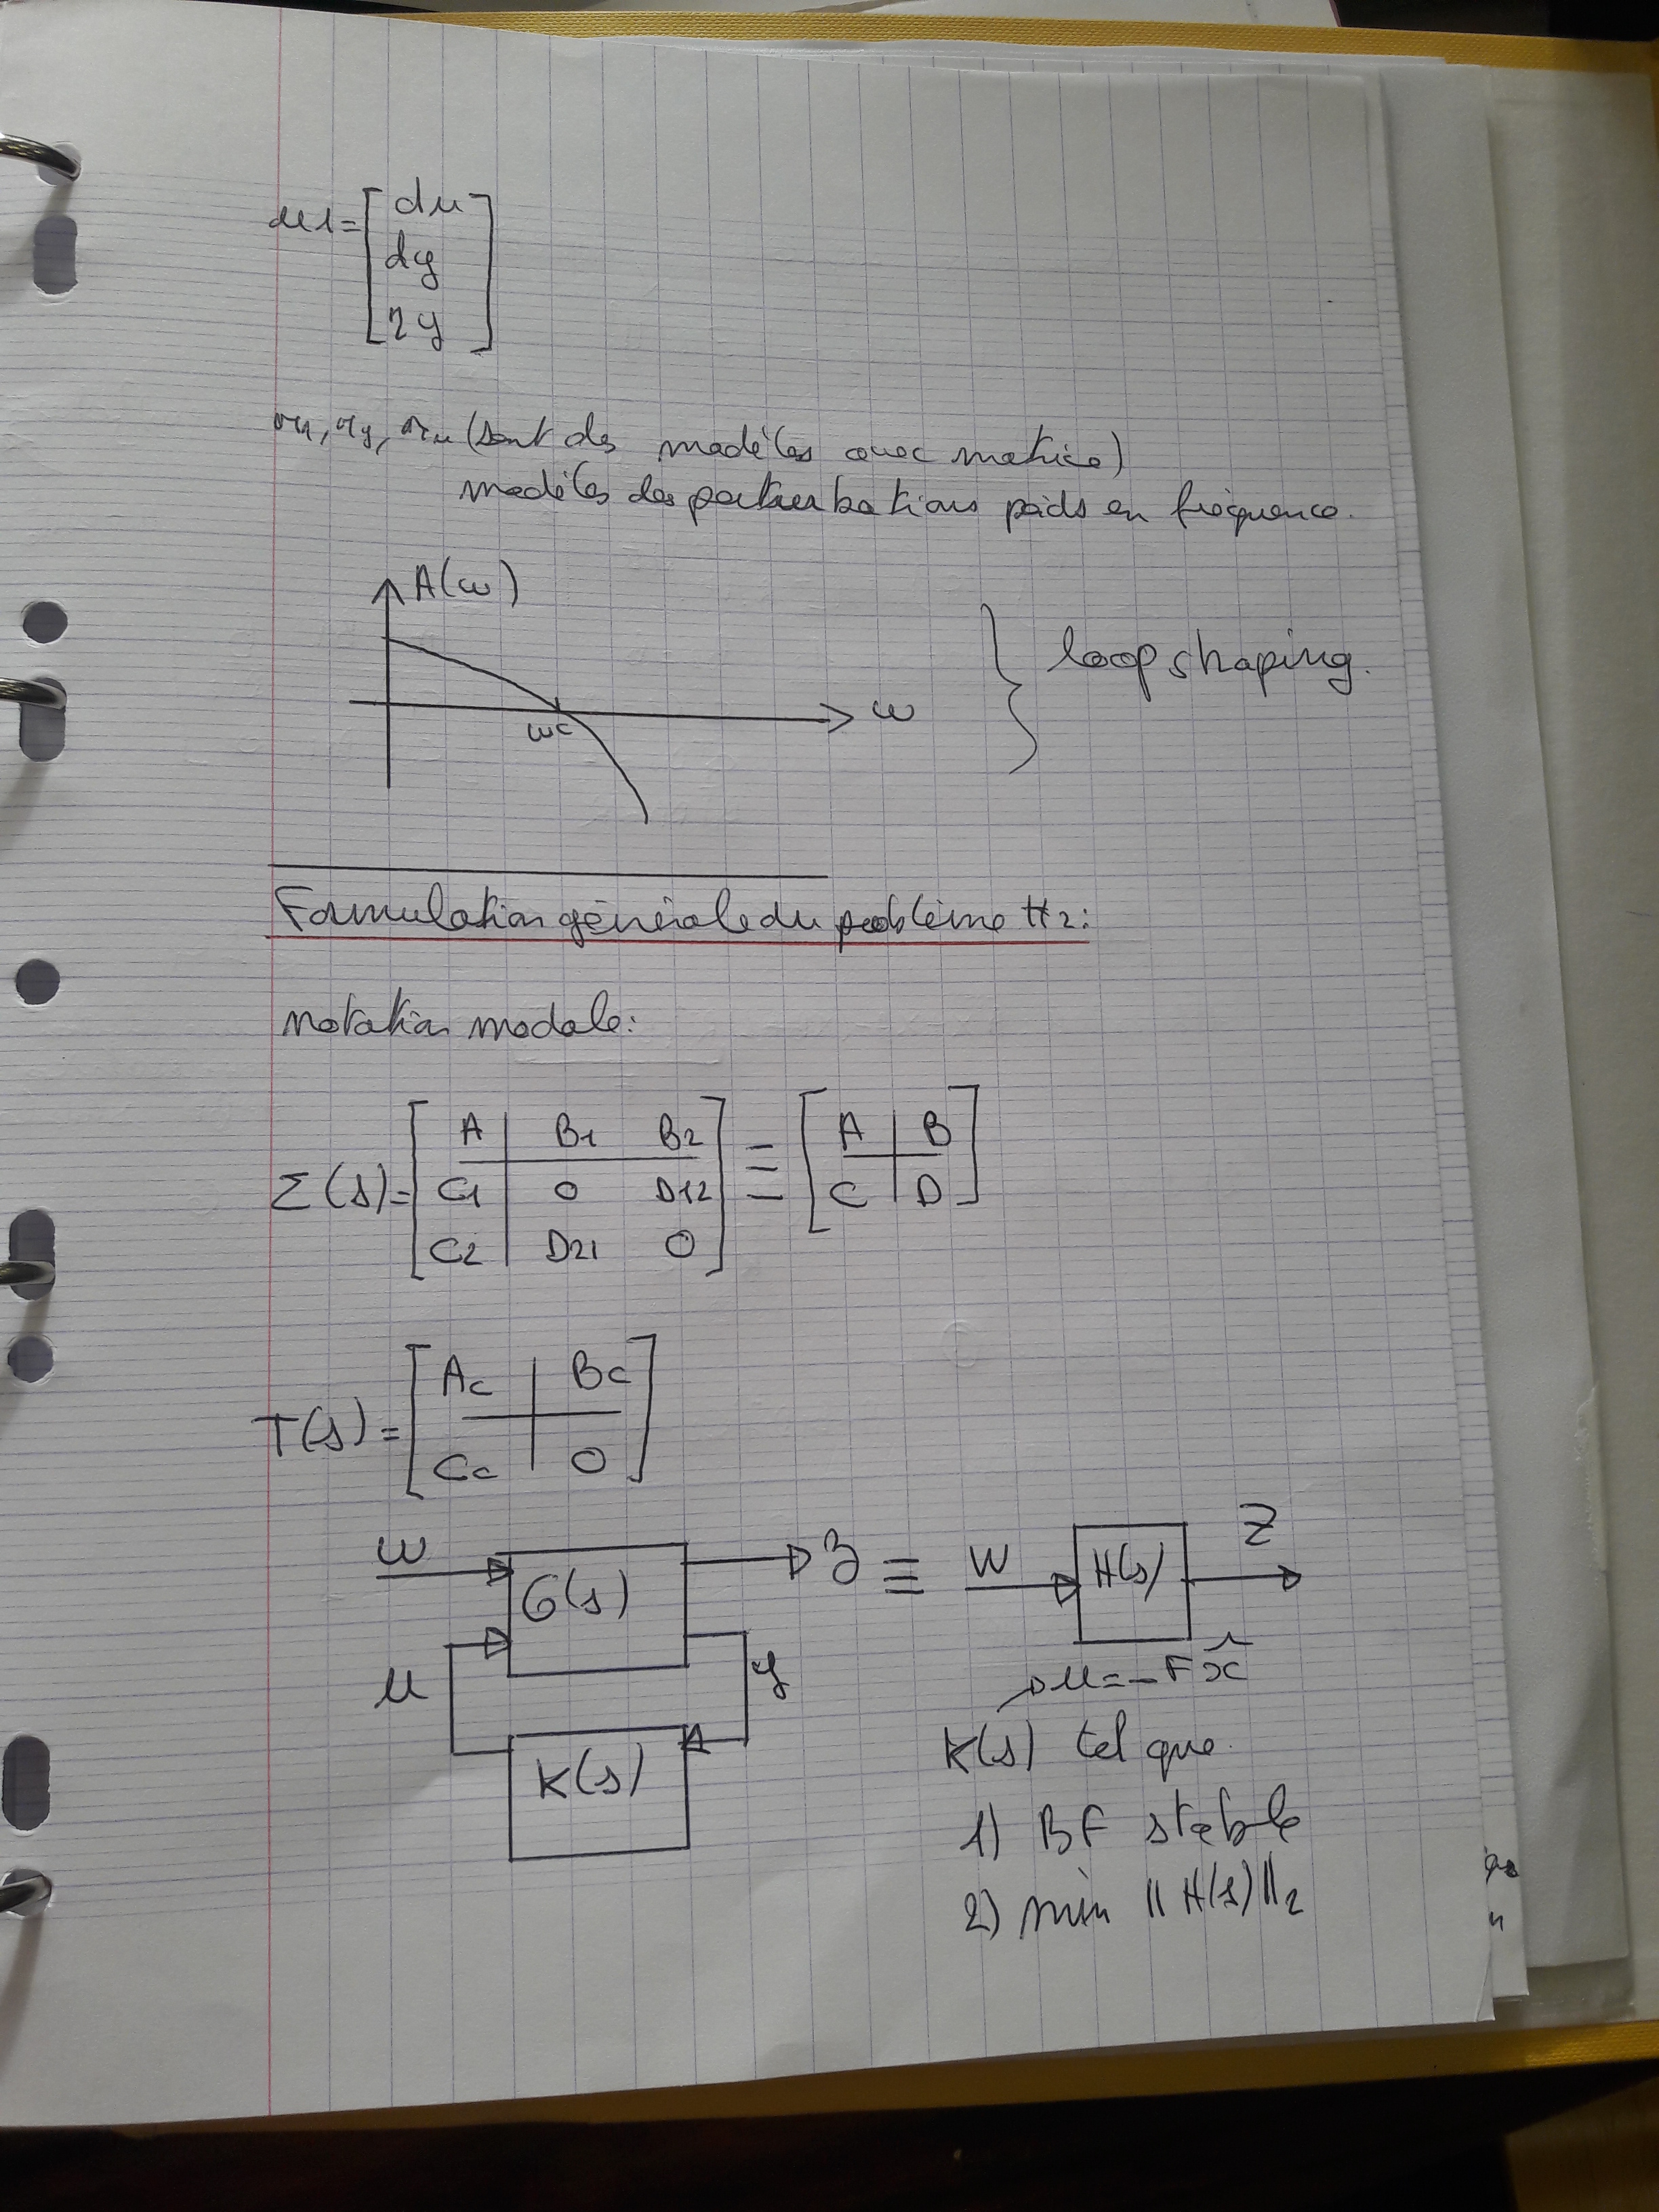 u1 = [ du
dy
ηy ]
(sont des modèles avec matrice)
modèles des perturbations poids en fréquence.
A(ω)
ωc
ω
} loop shaping.
Formulation générale du problème H2:
notation modale:
Σ(s) = [ A | B1 B2
C1 | 0 D12
C2 | D21 0 ] ≡ [ A | B
C | D ]
T(s) = [ Ac | Bc
Cc | 0 ]
ω G(s) z ≡ W H(s) Z
u y
K(s)
→ u = -F x̂
K(s) tel que
1) BF stable
2) min || H(s) ||2